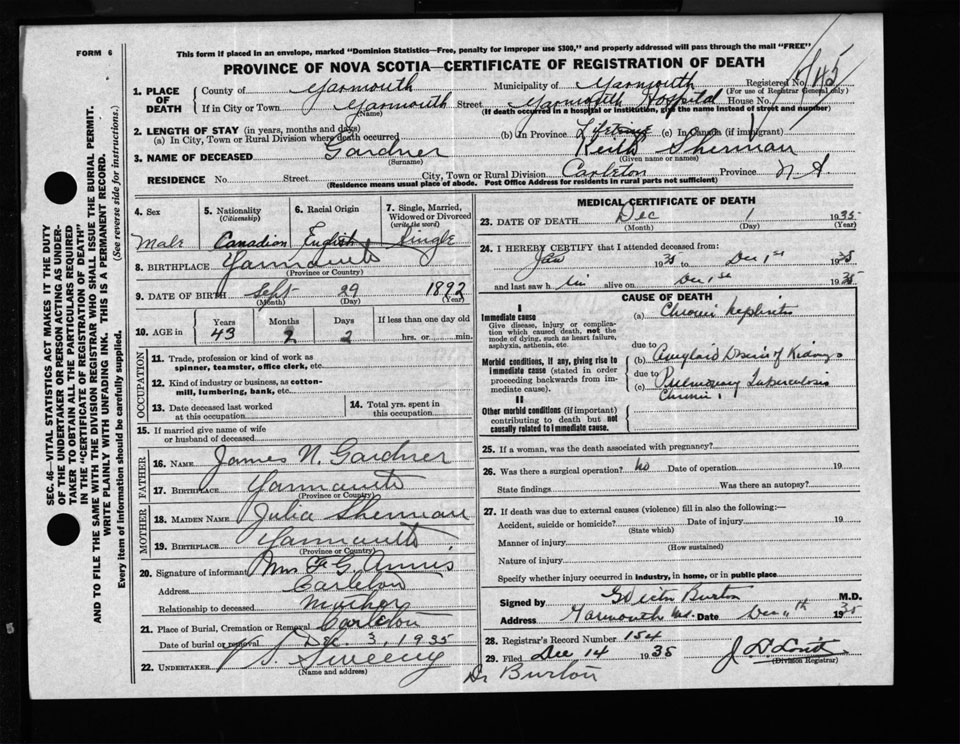 FORM 6
This form if placed in an envelope, marked "Dominion Statistics—Free, penalty for improper use $300," and properly addressed will pass through the mail "FREE"
PROVINCE OF NOVA SCOTIA—CERTIFICATE OF REGISTRATION OF DEATH
1. PLACE OF DEATH
County of Yarmouth Municipality of Yarmouth Registered No.
(For use of Registrar General only)
If in City or Town Yarmouth Street Yarmouth Hospital House No.
(Name) (If death occurred in a hospital or institution, give the name instead of street and number)
2. LENGTH OF STAY (in years, months and days)
(a) In City, Town or Rural Division where death occurred (b) In Province Lifetime (c) In Canada (if immigrant)
3. NAME OF DECEASED Gardner Keith Sherman
(Surname) (Given name or names)
RESIDENCE No. Street City, Town or Rural Division Carleton Province N.S.
(Residence means usual place of abode. Post Office Address for residents in rural parts not sufficient)
4. Sex Male
5. Nationality (Citizenship) Canadian
6. Racial Origin English
7. Single, Married, Widowed or Divorced (write the word) Single
8. BIRTHPLACE Yarmouth
(Province or Country)
9. DATE OF BIRTH Sept 29 1892
(Month) (Day) (Year)
10. AGE in Years Months Days If less than one day old
43 2 2 hrs. or min.
OCCUPATION
11. Trade, profession or kind of work as spinner, teamster, office clerk, etc.
12. Kind of industry or business, as cotton-mill, lumbering, bank, etc.
13. Date deceased last worked at this occupation
14. Total yrs. spent in this occupation
15. If married give name of wife or husband of deceased
FATHER
16. NAME James N. Gardner
17. BIRTHPLACE Yarmouth
(Province or Country)
MOTHER
18. MAIDEN NAME Julia Sherman
19. BIRTHPLACE Yarmouth
(Province or Country)
20. Signature of informant Mrs F. G. Annis
Address Carleton
Relationship to deceased Mother
21. Place of Burial, Cremation or Removal Carleton
Date of burial or removal Dec. 3, 1935
22. UNDERTAKER Sweeny
(Name and address)
MEDICAL CERTIFICATE OF DEATH
23. DATE OF DEATH Dec 1 1935
(Month) (Day) (Year)
24. I HEREBY CERTIFY that I attended deceased from:
Jan 1935 to Dec 1st 1935
and last saw him alive on Dec 1st 1935
CAUSE OF DEATH
I
Immediate cause
Give disease, injury or complication which caused death, not the mode of dying, such as heart failure, asphyxia, asthenia, etc.
(a) Chronic Nephritis
due to
Morbid conditions, if any, giving rise to immediate cause (stated in order proceeding backwards from immediate cause).
(b) Amyloid Disease of Kidneys
due to
(c) Pulmonary Tuberculosis
Chronic.
II
Other morbid conditions (if important) contributing to death but not causally related to immediate cause.
25. If a woman, was the death associated with pregnancy?
26. Was there a surgical operation? No Date of operation 19
State findings Was there an autopsy?
27. If death was due to external causes (violence) fill in also the following:—
Accident, suicide or homicide? Date of injury 19
(State which)
Manner of injury
(How sustained)
Nature of injury
Specify whether injury occurred in industry, in home, or in public place
Signed by Burton M.D.
Address Yarmouth N.S. Date Dec 1935
28. Registrar's Record Number 154
29. Filed Dec 14 1935
(Division Registrar)
Dr Burton
SEC. 46—VITAL STATISTICS ACT MAKES IT THE DUTY OF THE UNDERTAKER OR PERSON ACTING AS UNDERTAKER TO OBTAIN ALL THE PARTICULARS REQUIRED IN THE "CERTIFICATE OF REGISTRATION OF DEATH" AND TO FILE THE SAME WITH THE DIVISION REGISTRAR WHO SHALL ISSUE THE BURIAL PERMIT.
WRITE PLAINLY WITH UNFADING INK. THIS IS A PERMANENT RECORD.
Every item of information should be carefully supplied. (See reverse side for instructions.)